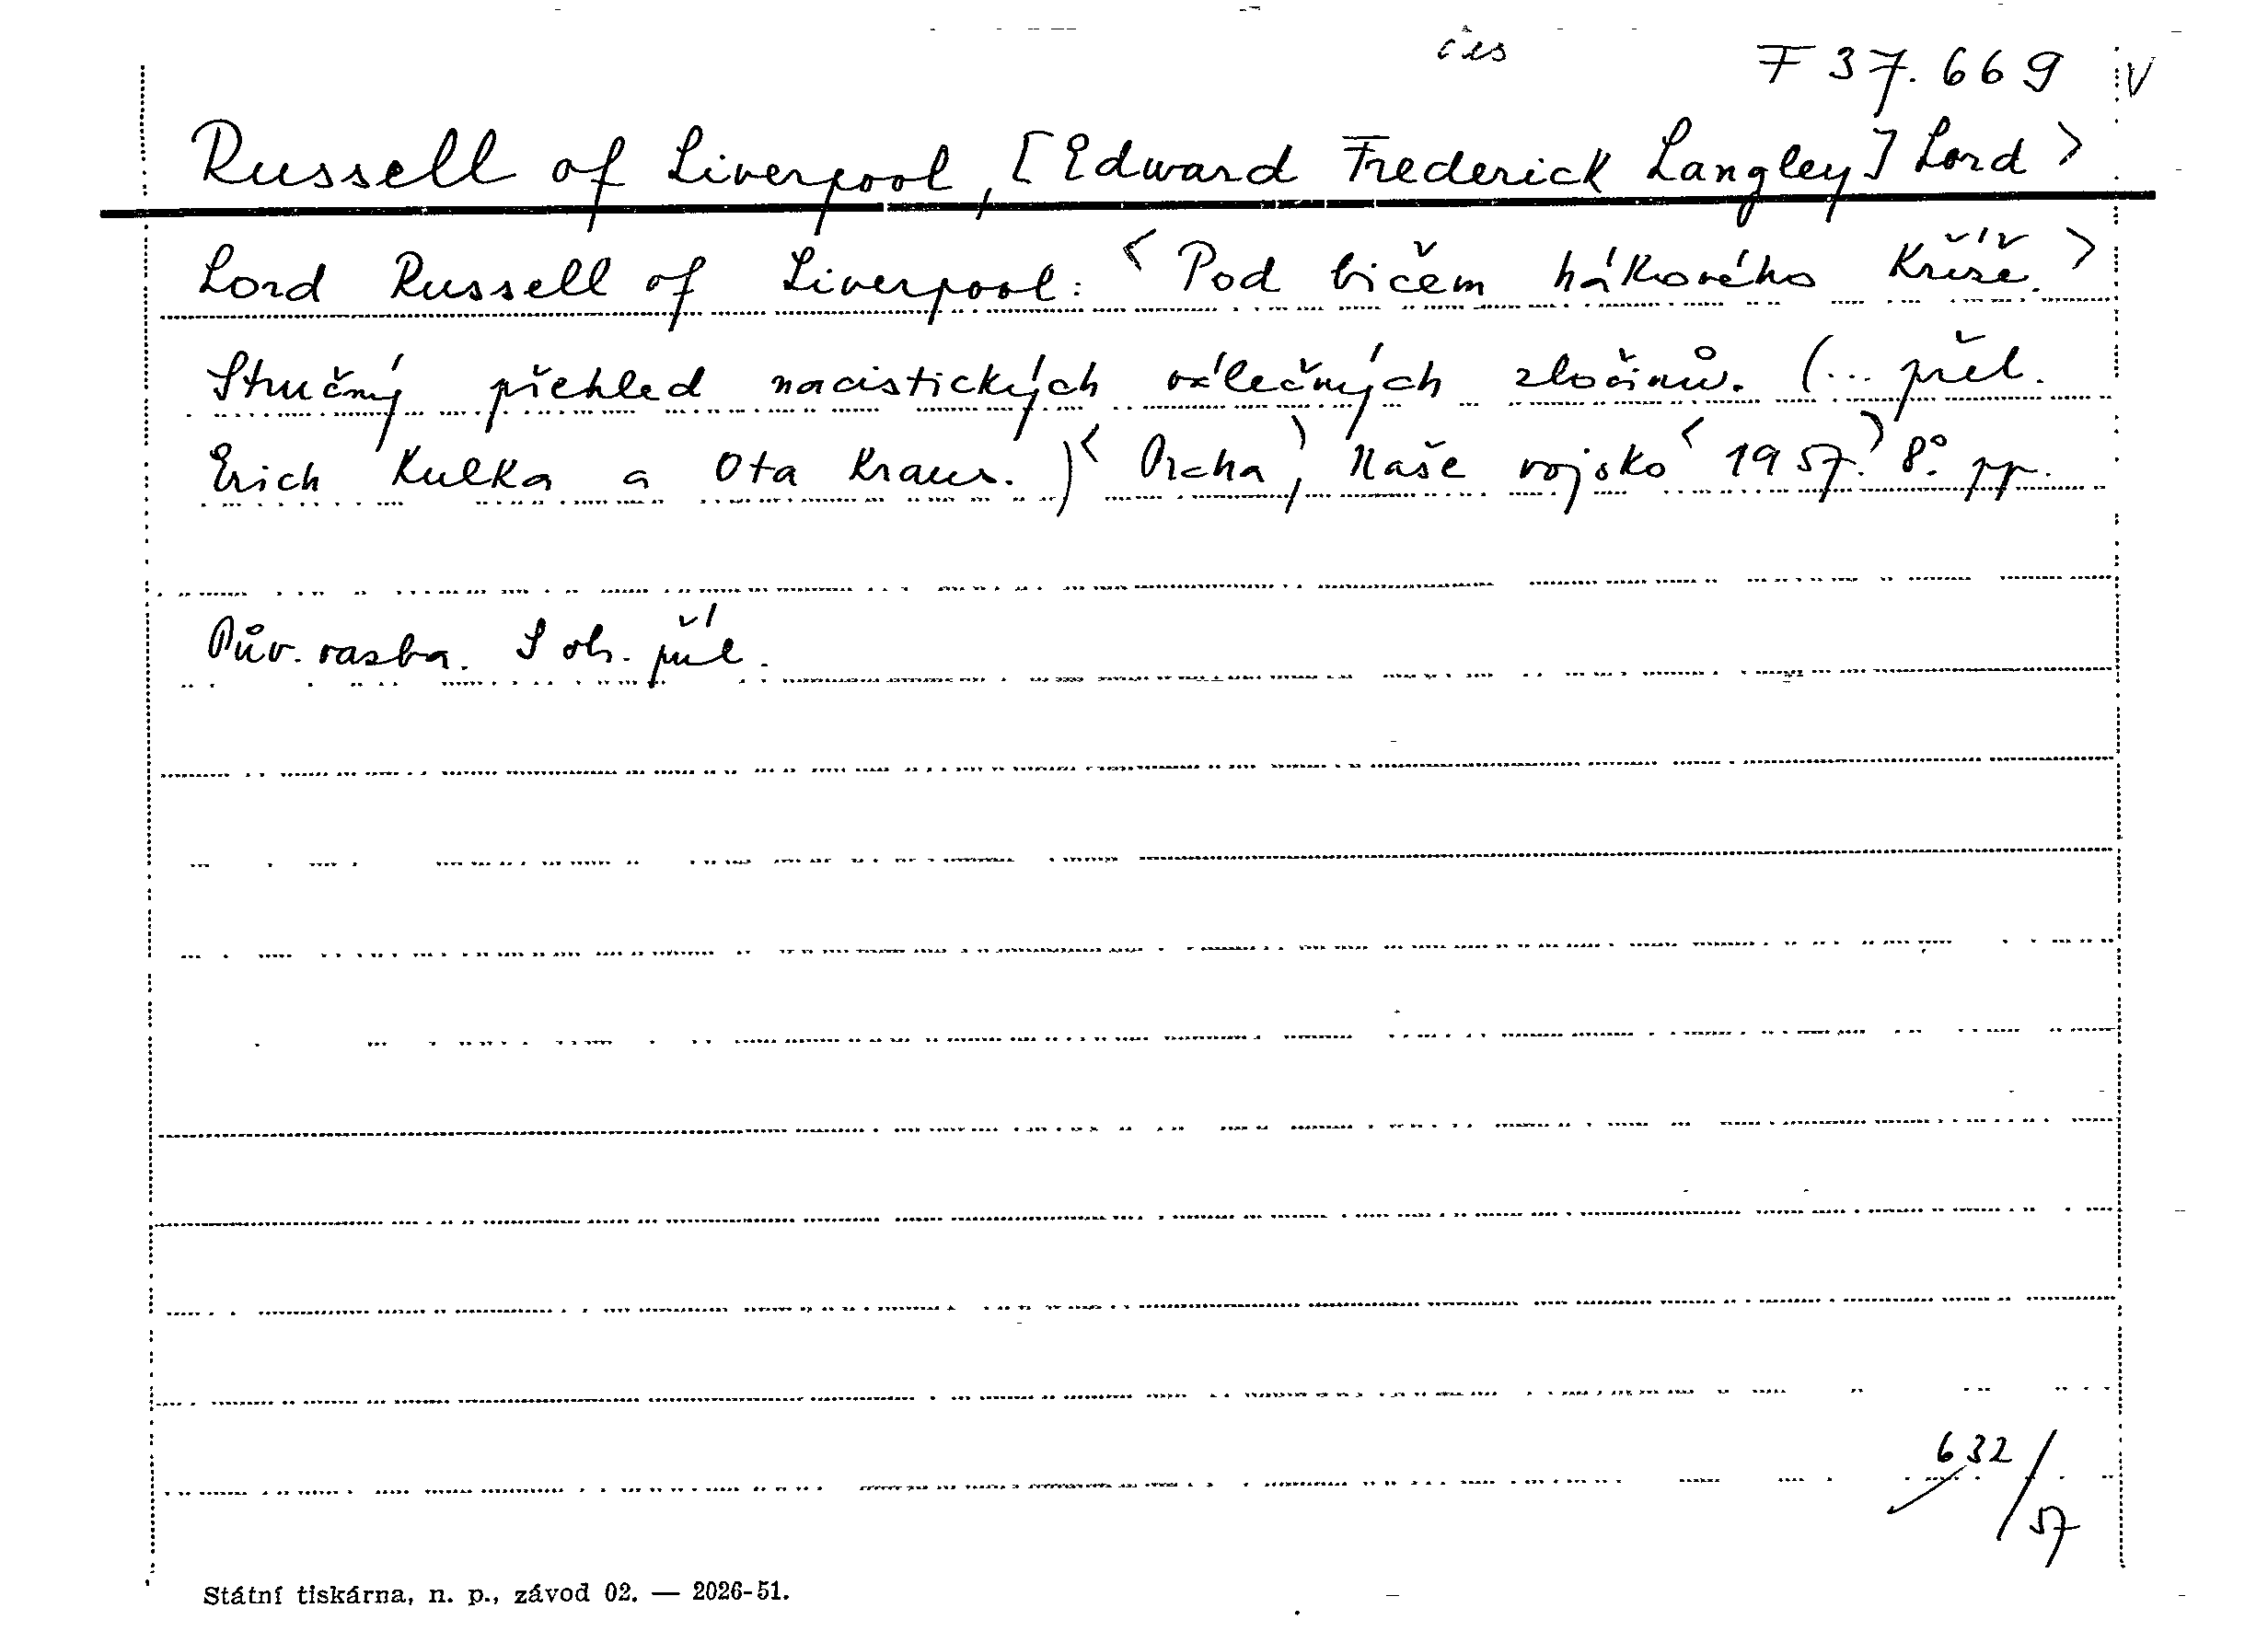 čes F 37.669 V
Russell of Liverpool, [Edward Frederick Langley] Lord >
Lord Russell of Liverpool: <Pod bičem hákového kříže.>
Stručný přehled nacistických válečných zločinů. (... přel.
Erich Kulka a Ota Kraus.) <Praha>, Naše vojsko <1957.> 8°. pp.
Pův. vazba. S ob. příl.
632/57
Státní tiskárna, n. p., závod 02. — 2026-51.